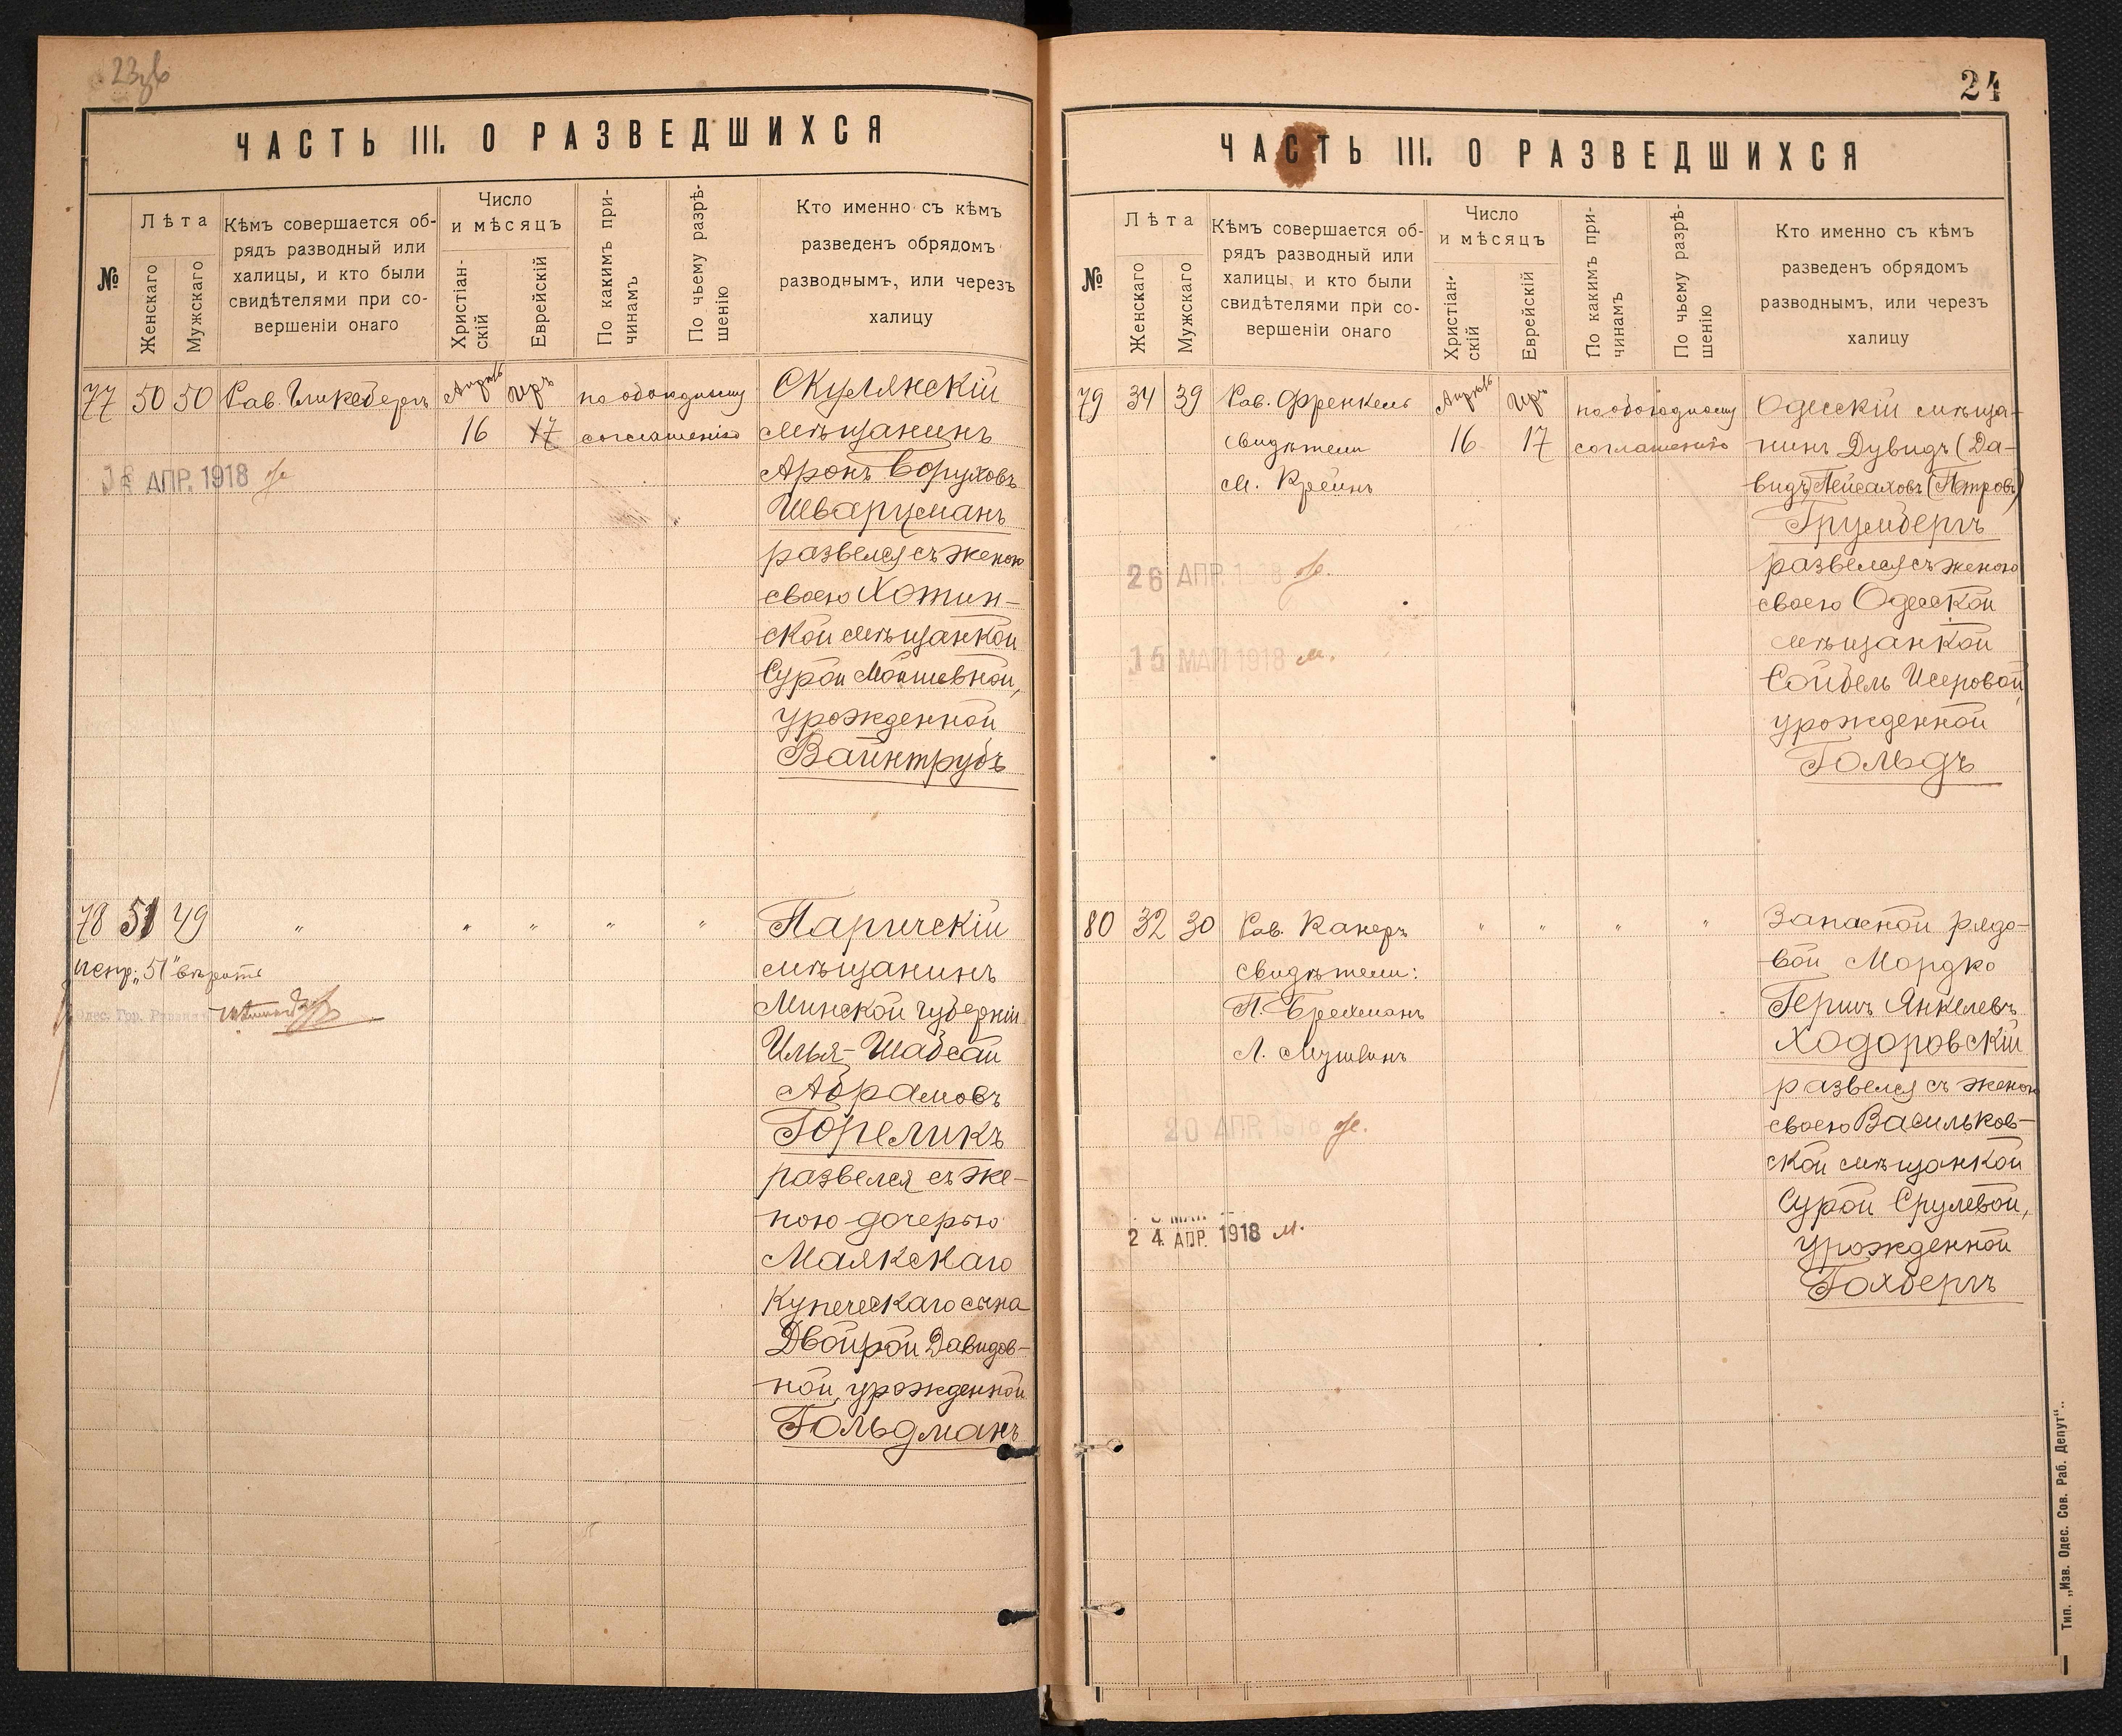 ЧАСТЬ III. О РАЗВЕДШИХСЯ
№
Лѣта
Женскаго
Мужскаго
Кѣмъ совершается об-
рядъ разводный или
халицы, и кто были
свидѣтелями при со-
вершеніи онаго
Число
и мѣсяцъ
Христіан-
скій
Еврейскій
По какимъ при-
чинамъ
По чьему разрѣ-
шенію
Кто именно съ кѣмъ
разведенъ обрядомъ
разводнымъ, или черезъ
халицу
77 50 50 Рав. Апрѣль Иръ по обоюдному
16 17 соглашенію
АПР. 1918
Скулянскій
мѣщанинъ
Аронъ Боруховъ
Шварцманъ
развелся съ женою
своею Хотин-
ской мѣщанкой
Сурой Мойшевной,
урожденной
Вайнтрубъ
78 51 49 " " " " "
испр. „51" вѣрить
Паричскій
мѣщанинъ
Минской губерніи
Илья-Шабсай
Абрамовъ
Гореликъ
развелся съ же-
ною дочерью
Маякскаго
Купеческаго сына
Двойрой Давидов-
ной, урожденной
Гольдманъ
24
ЧАСТЬ III. О РАЗВЕДШИХСЯ
№
Лѣта
Женскаго
Мужскаго
Кѣмъ совершается об-
рядъ разводный или
халицы, и кто были
свидѣтелями при со-
вершеніи онаго
Число
и мѣсяцъ
Христіан-
скій
Еврейскій
По какимъ при-
чинамъ
По чьему разрѣ-
шенію
Кто именно съ кѣмъ
разведенъ обрядомъ
разводнымъ, или черезъ
халицу
79 34 39 Рав. Френкель Апрѣль Иръ по обоюдному
свидѣтели 16 17 соглашенію
М. Крейнъ
26 АПР. 1918
15 МАЙ 1918 м.
Одесскій мѣща-
нинъ Дувидъ (Да-
видъ) Пейсаховъ (Петровъ)
Грумбергъ
развелся съ женою
своею Одесской
мѣщанкой
Сойбель Исеровой,
урожденной
Гольдъ
80 32 30 Рав. Канеръ " " " "
свидѣтели:
П. Брехманъ
20 АПР. 1918
24 АПР. 1918 м.
Запасной рядо-
вой Мордко
Гершъ Янкелевъ
Ходоровскій
развелся съ женою
своею Васильков-
ской мѣщанкой
Сурой Срулевой,
урожденной
Гохбергъ
Тип. „Изв. Одес. Сов. Раб. Депут"..